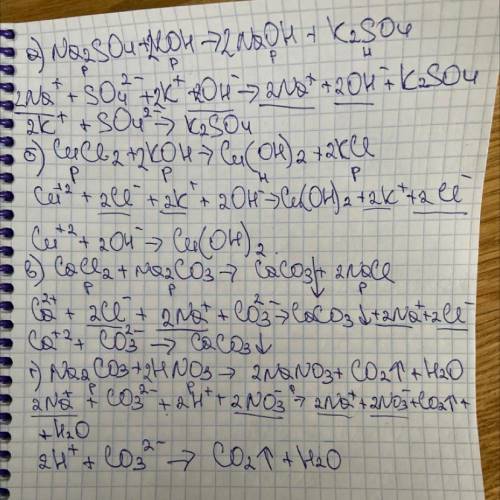 а) Na2SO4 + 2KOH → 2NaOH + K2SO4
р р р н
2Na⁺ + SO4²⁻ + 2K⁺ + 2OH⁻ → 2Na⁺ + 2OH⁻ + K2SO4
2K⁺ + SO4²⁻ → K2SO4
б) CuCl2 + 2KOH → Cu(OH)2 + 2KCl
р р н р
Cu⁺² + 2Cl⁻ + 2K⁺ + 2OH⁻ → Cu(OH)2 + 2K⁺ + 2Cl⁻
Cu⁺² + 2OH⁻ → Cu(OH)2
в) CaCl2 + Na2CO3 → CaCO3↓ + 2NaCl
р р р
Ca²⁺ + 2Cl⁻ + 2Na⁺ + CO3²⁻ → CaCO3↓ + 2Na⁺ + 2Cl⁻
Ca⁺² + CO3²⁻ → CaCO3↓
г) Na2CO3 + 2HNO3 → 2NaNO3 + CO2↑ + H2O
р р р
2Na⁺ + CO3²⁻ + 2H⁺ + 2NO3⁻ → 2Na⁺ + 2NO3⁻ + CO2↑ +
+ H2O
2H⁺ + CO3²⁻ → CO2↑ + H2O